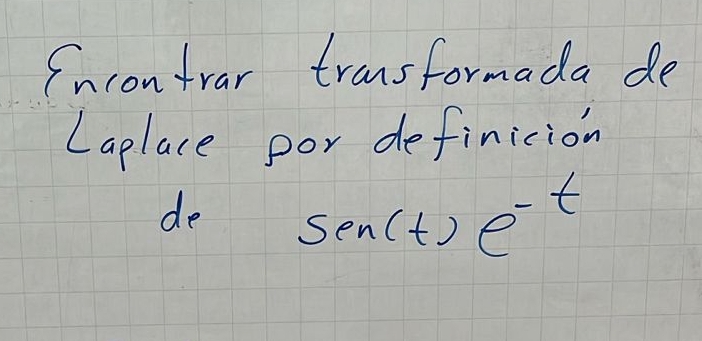 Encontrar transformada de
Laplace por definición
de sen(t) e^-t